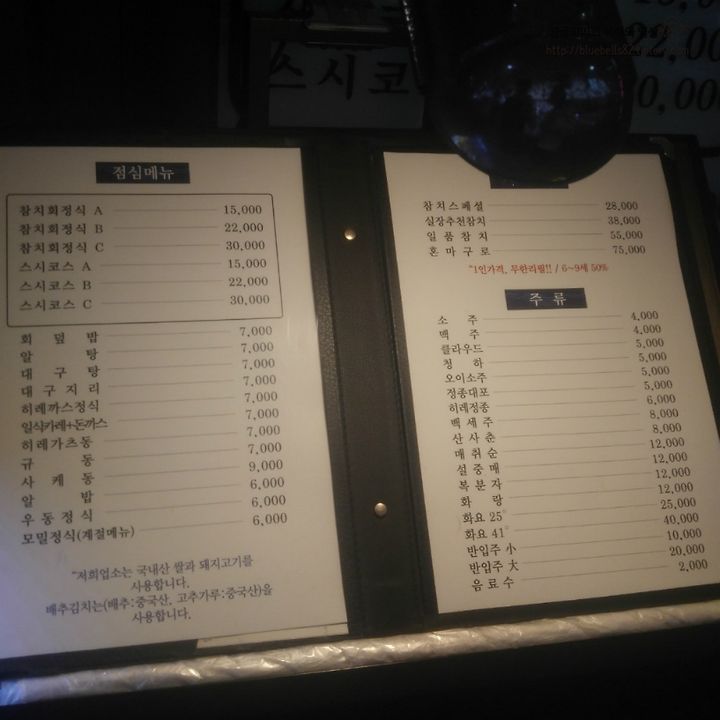 스시코스
0,00
http://bluebells82.tistory.com
점심메뉴
참치회정식 A 15,000
참치회정식 B 22,000
참치회정식 C 30,000
스시코스 A 15,000
스시코스 B 22,000
스시코스 C 30,000
회 덮 밥 7,000
알 탕 7,000
대 구 탕 7,000
대 구 지 리 7,000
히레까스정식 7,000
일식카레+돈까스 7,000
히레가츠동 7,000
규 동 7,000
사 케 동 9,000
알 밥 6,000
우 동 정 식 6,000
모밀정식(계절메뉴) 6,000
"저희업소는 국내산 쌀과 돼지고기를
사용합니다.
배추김치는(배추:중국산, 고추가루:중국산)을
사용합니다.
참치스페셜 28,000
실장추천참치 38,000
일 품 참 치 55,000
혼 마 구 로 75,000
"1인가격, 무한리필!! / 6~9세 50%
주 류
소 주 4,000
맥 주 4,000
클라우드 5,000
청 하 5,000
오이소주 5,000
정종대포 5,000
히레정종 6,000
백 세 주 8,000
산 사 춘 8,000
매 취 순 12,000
설 중 매 12,000
복 분 자 12,000
화 랑 12,000
화요 25° 25,000
화요 41° 40,000
반입주 小 10,000
반입주 大 20,000
음 료 수 2,000